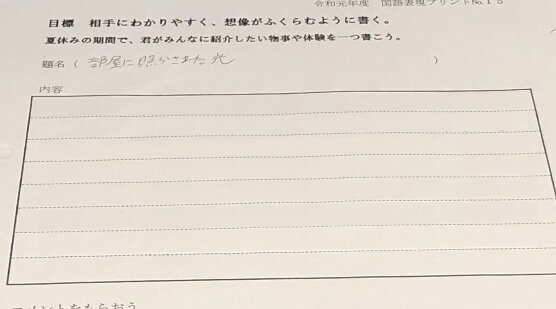 令和元年度 国語表現プリントNo.15
目標 相手にわかりやすく、想像がふくらむように書く。
夏休みの期間で、君がみんなに紹介したい物事や体験を一つ書こう。
題名（ 部屋に照らされた光 ）
内容
コメントをもらおう